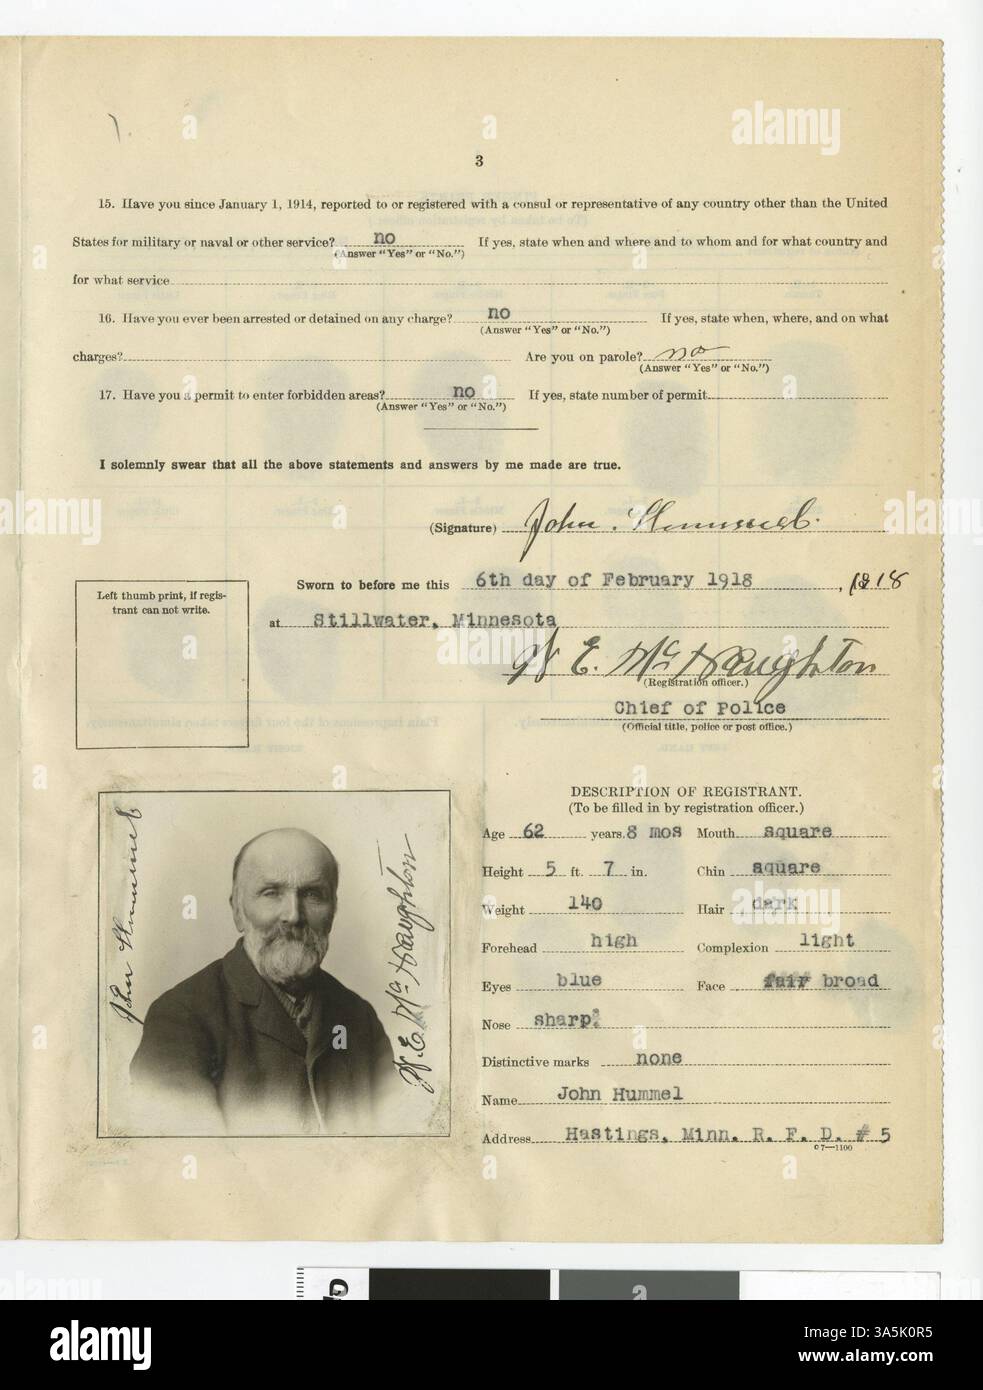 3
15. Have you since January 1, 1914, reported to or registered with a consul or representative of any country other than the United
States for military or naval or other service? no If yes, state when and where and to whom and for what country and
(Answer "Yes" or "No.")
for what service
16. Have you ever been arrested or detained on any charge? no If yes, state when, where, and on what
(Answer "Yes" or "No.")
charges? Are you on parole? no
(Answer "Yes" or "No.")
17. Have you a permit to enter forbidden areas? no If yes, state number of permit
(Answer "Yes" or "No.")
I solemnly swear that all the above statements and answers by me made are true.
(Signature) John Hummel.
Sworn to before me this 6th day of February 1918, 1918
at Stillwater, Minnesota
W E. McNaughton
(Registration officer.)
Chief of Police
(Official title, police or post office.)
Left thumb print, if regis-
trant can not write.
John Hummel
W. E. McNaughton
DESCRIPTION OF REGISTRANT.
(To be filled in by registration officer.)
Age 62 years 8 mos Mouth square
Height 5 ft. 7 in. Chin square
Weight 140 Hair dark
Forehead high Complexion light
Eyes blue Face fair broad
Nose sharp
Distinctive marks none
Name John Hummel
Address Hastings, Minn. R. F. D. # 5
c7—1100
a alamy
alamy
Image ID: 3A5K0R5
www.alamy.com